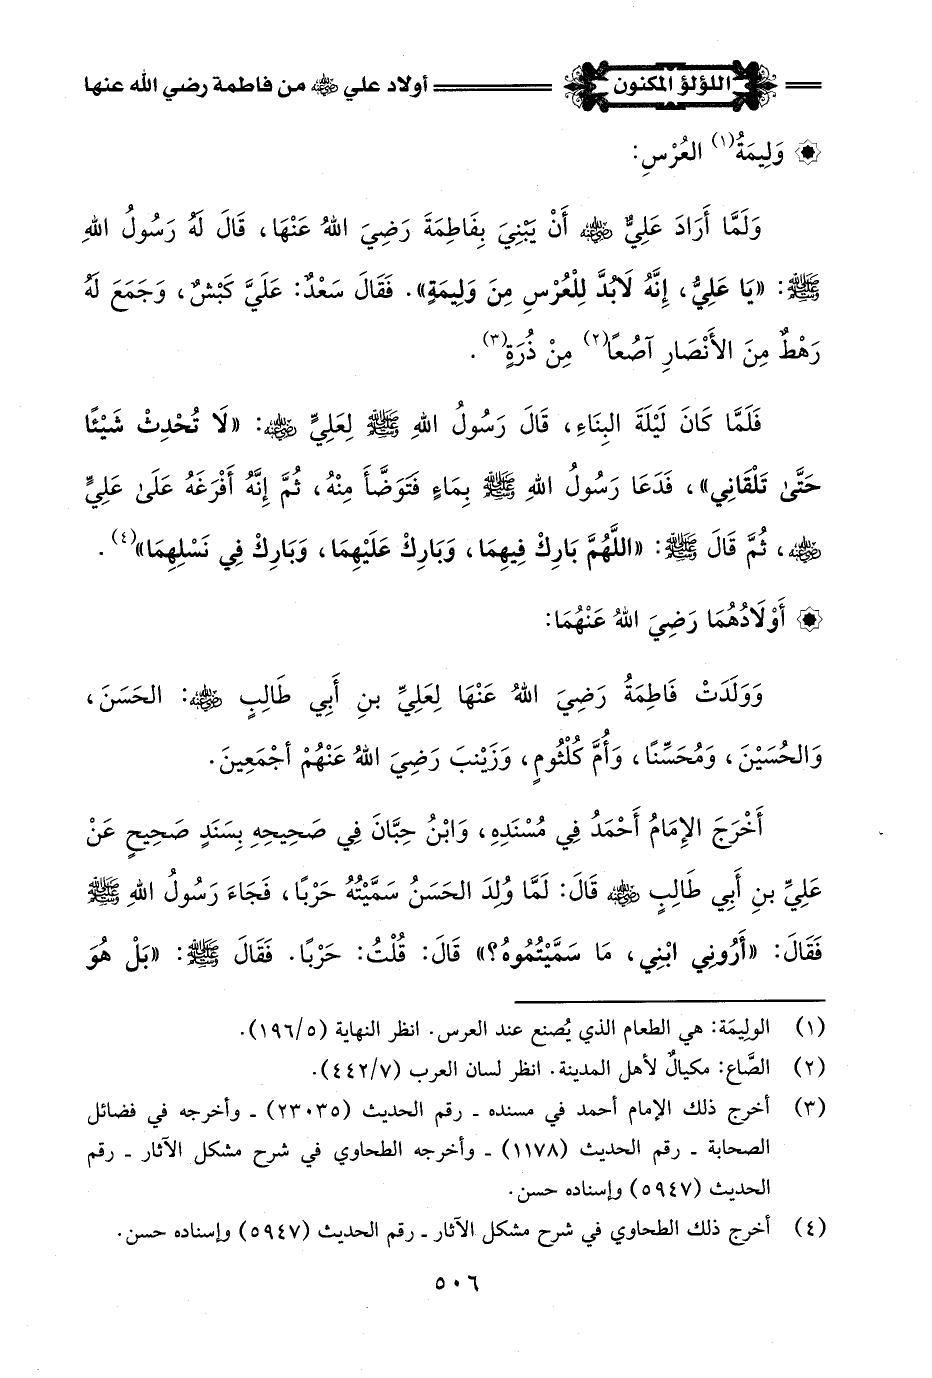 اللؤلؤ المكنون أولاد علي رضي الله عنه من فاطمة رضي الله عنها
وَلِيمَةُ(١) العُرْسِ:
وَلَمَّا أَرَادَ عَلِيٌّ رضي الله عنه أَنْ يَبْنِيَ بِفَاطِمَةَ رَضِيَ اللهُ عَنْهَا، قَالَ لَهُ رَسُولُ اللهِ
ﷺ: «يَا عَلِيُّ، إِنَّهُ لَابُدَّ لِلْعُرْسِ مِنَ وَلِيمَةٍ». فَقَالَ سَعْدٌ: عَلَيَّ كَبْشٌ، وَجَمَعَ لَهُ
رَهْطٌ مِنَ الأَنْصَارِ آصُعاً(٢) مِنْ ذُرَةٍ(٣).
فَلَمَّا كَانَ لَيْلَةَ البِنَاءِ، قَالَ رَسُولُ اللهِ ﷺ لِعَلِيٍّ رضي الله عنه: «لَا تُحْدِثْ شَيْئًا
حَتَّىٰ تَلْقَانِي»، فَدَعَا رَسُولُ اللهِ ﷺ بِمَاءٍ فَتَوَضَّأَ مِنْهُ، ثُمَّ إِنَّهُ أَفْرَغَهُ عَلَىٰ عَلِيٍّ
رضي الله عنه، ثُمَّ قَالَ ﷺ: «اللَّهُمَّ بَارِكْ فِيهِمَا، وَبَارِكْ عَلَيْهِمَا، وَبَارِكْ فِي نَسْلِهِمَا»(٤).
أَوْلَادُهُمَا رَضِيَ اللهُ عَنْهُمَا:
وَوَلَدَتْ فَاطِمَةُ رَضِيَ اللهُ عَنْهَا لِعَلِيِّ بنِ أَبِي طَالِبٍ رضي الله عنه: الحَسَنَ،
وَالحُسَيْنَ، وَمُحَسِّنًا، وَأُمَّ كُلْثُومٍ، وَزَيْنَبَ رَضِيَ اللهُ عَنْهُمْ أجْمَعِينَ.
أَخْرَجَ الإِمَامُ أَحْمَدُ فِي مُسْنَدِهِ، وَابْنُ حِبَّانَ فِي صَحِيحِهِ بِسَنَدٍ صَحِيحٍ عَنْ
عَلِيِّ بنِ أَبِي طَالِبٍ رضي الله عنه قَالَ: لَمَّا وُلِدَ الحَسَنُ سَمَّيْتُهُ حَرْبًا، فَجَاءَ رَسُولُ اللهِ ﷺ
فَقَالَ: «أَرُونِي ابْنِي، مَا سَمَّيْتُمُوهُ؟» قَالَ: قُلْتُ: حَرْبًا. فَقَالَ ﷺ: «بَلْ هُوَ
(١) الوليمَة: هي الطعام الذي يُصنع عند العرس. انظر النهاية (١٩٦/٥).
(٢) الصَّاع: مكيالٌ لأهل المدينة. انظر لسان العرب (٤٤٢/٧).
(٣) أخرج ذلك الإمام أحمد في مسنده ـ رقم الحديث (٢٣٠٣٥) ـ وأخرجه في فضائل
الصحابة ـ رقم الحديث (١١٧٨) ـ وأخرجه الطحاوي في شرح مشكل الآثار ـ رقم
الحديث (٥٩٤٧) وإسناده حسن.
(٤) أخرج ذلك الطحاوي في شرح مشكل الآثار ـ رقم الحديث (٥٩٤٧) وإسناده حسن.
٥٠٦